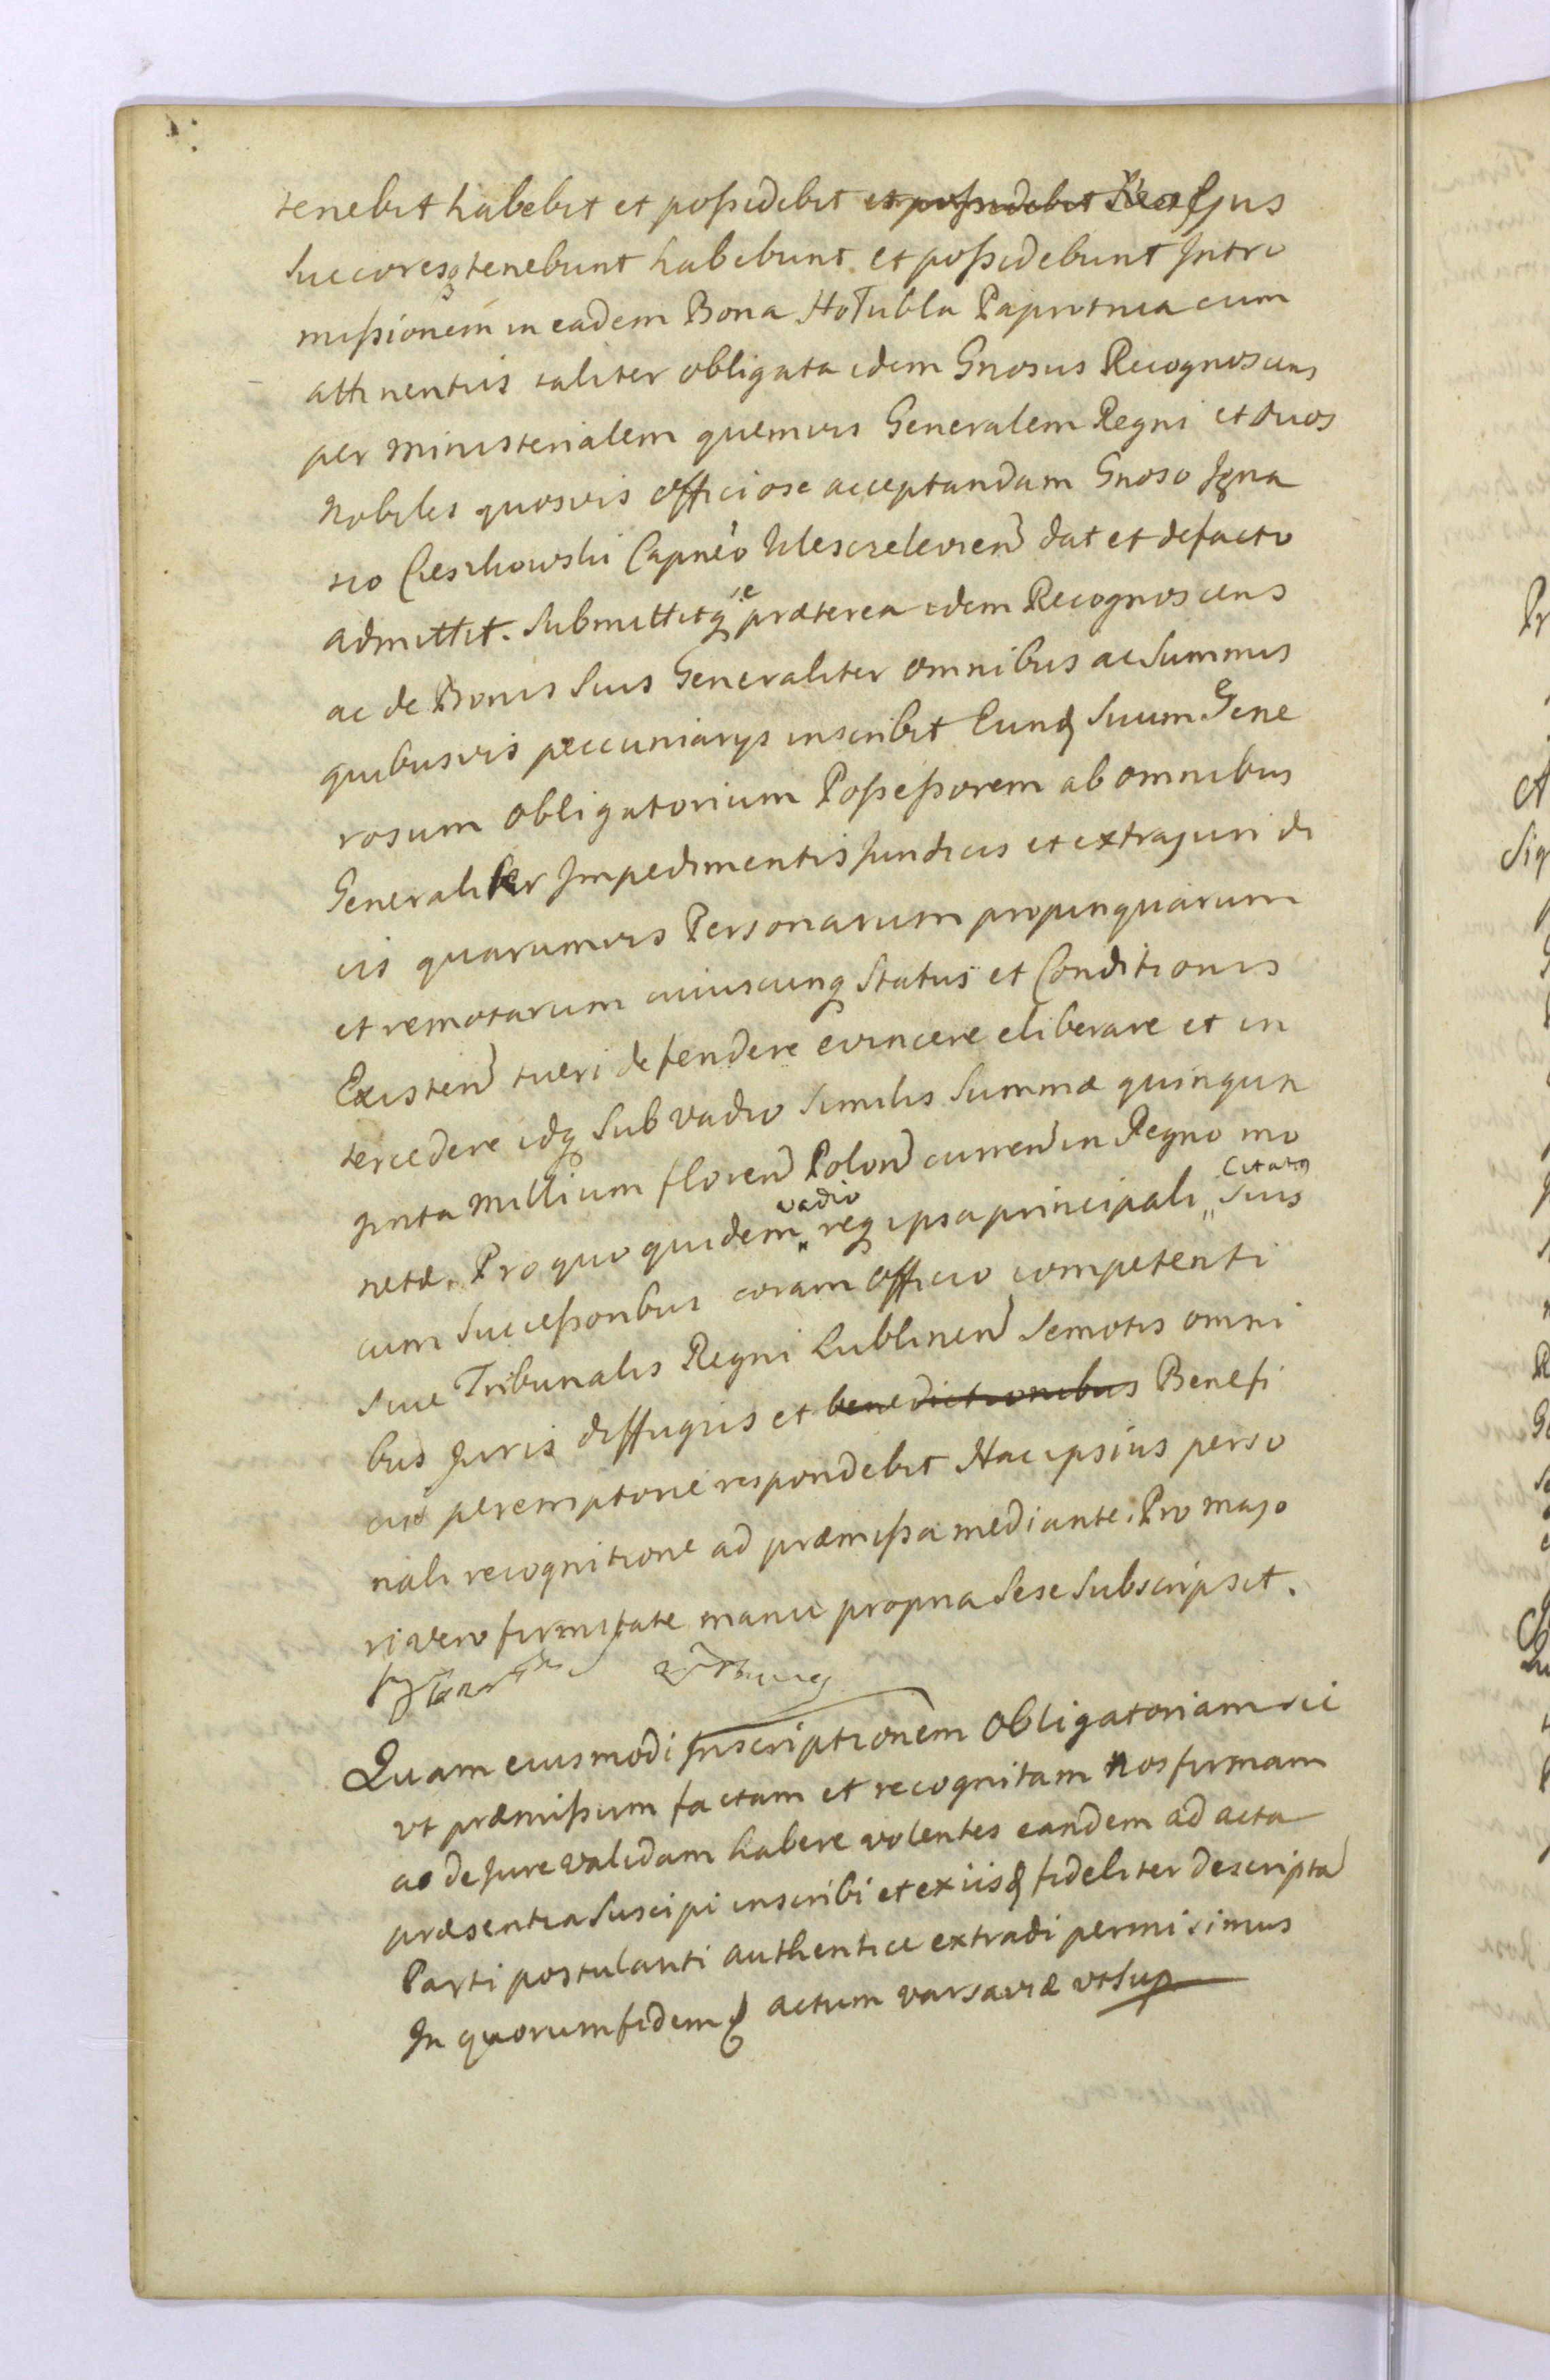 tenebit habebit et poßidebit et poßidebit Ejus
Succoresq tenebunt habebunt et poßidebunt Intro
mißionem in eadem Bona Hołubla Paprotnia cum
attinentiis taliter obligata idem Gnosus Recognoscens
per Ministerialem quemvis Generalem Regni et duos
Nobiles quosvis officiose acceptandam Gnoso Igna
tio Cieszkowski Capneo Kleszczelovien dat et defacto
admittit. Submittitq se præterea idem Recognoscens
ac de Bonis Suis Generaliter omnibus ac Summis
quibusvis peccuniarys inscribit Eund Suum Gene
rosum obligatorium Poßeßorem ab omnibus
Generaliter Impedimentis Juridicis et extrajuridi
cis quarumvis Personarum propinquarum
et remotarum cuiuscunq Status et Conditionis
Existen tueri defendere evincere eliberare et in
tercedere idq Sub vadio Similis Summæ quinqua
ginta Millium floren Polon curren in Regno mo
netæ. Pro quo quidem vadio req ipsa principali Citatq Suis
cum Succeßoribus coram Officio competenti
Sive Tribunalis Regni Lublinen Semotis omni
bus Juris diffugiis et benedictionibus Benefi
ciis peremptorie respondebit Hac ipsius perso
nali recognitione ad præmißa mediante. Pro majo
ri vero firmitate manu propria Sese Subscripsit.
Quam eiusmodi Inscriptionem Obligatoriam sic
ut præmißum factam et recognitam Nos firmam
ac de Jure validam habere volentes eandem ad acta
præsentia Suscipi inscribi et ex iisd fideliter descripta
Parti postulanti authentice extradi permisimus
In quorum fidem actum varsaviæ ut Sup